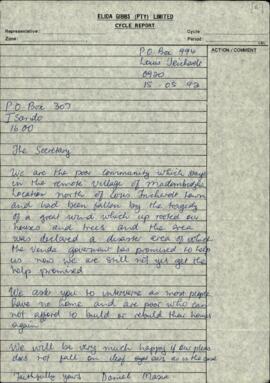 ELIDA GIBBS (PTY) LIMITED
CYCLE REPORT
Representative:
Cycle
Zone:
Period
ACTION / COMMENT
P.O. Box 994
Louis Trichardt
0920
P.O. Box 307
1600
The Secretary
We are the poor community which stays
in the remote village of
location north of Louis Trichardt town
and had been fallen by the tragedy
of a great wind which up rooted our
houses and trees and the area
was declared a disaster area of which
the venda governor has promised to help
us now we are still not yet get the
help promised
We ask you to intervene as most people
have no home and are poor who can
not afford to build or rebuild their homes
again
We will be very much happy if our pleas
does not fall on deaf ears as is the case
Faithfully yours Daniel